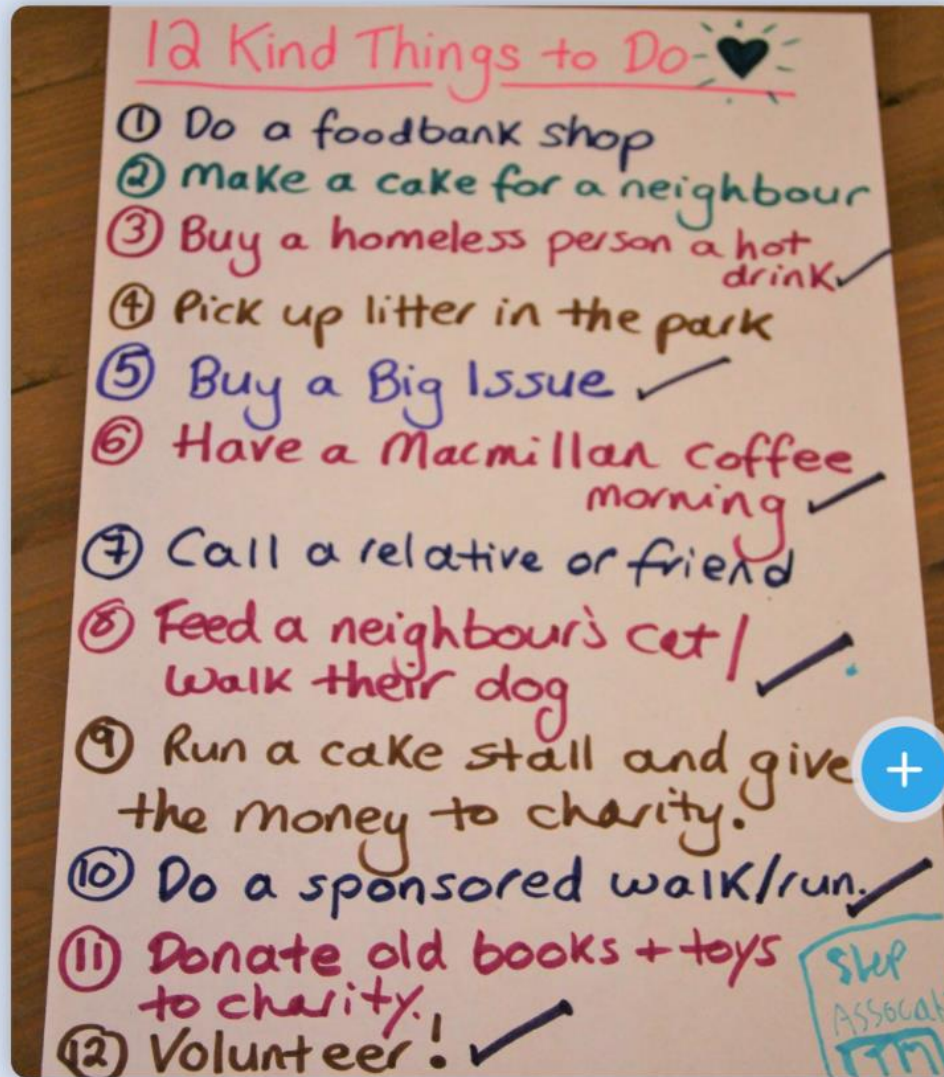 12 Kind Things to Do
① Do a foodbank shop
② Make a cake for a neighbour
③ Buy a homeless person a hot
drink ✓
④ Pick up litter in the park
⑤ Buy a Big Issue ✓
⑥ Have a Macmillan coffee
morning ✓
⑦ Call a relative or friend
⑧ Feed a neighbour's cat/
walk their dog ✓
⑨ Run a cake stall and give
the money to charity.
⑩ Do a sponsored walk/run. ✓
⑪ Donate old books + toys
to charity.
⑫ Volunteer! ✓